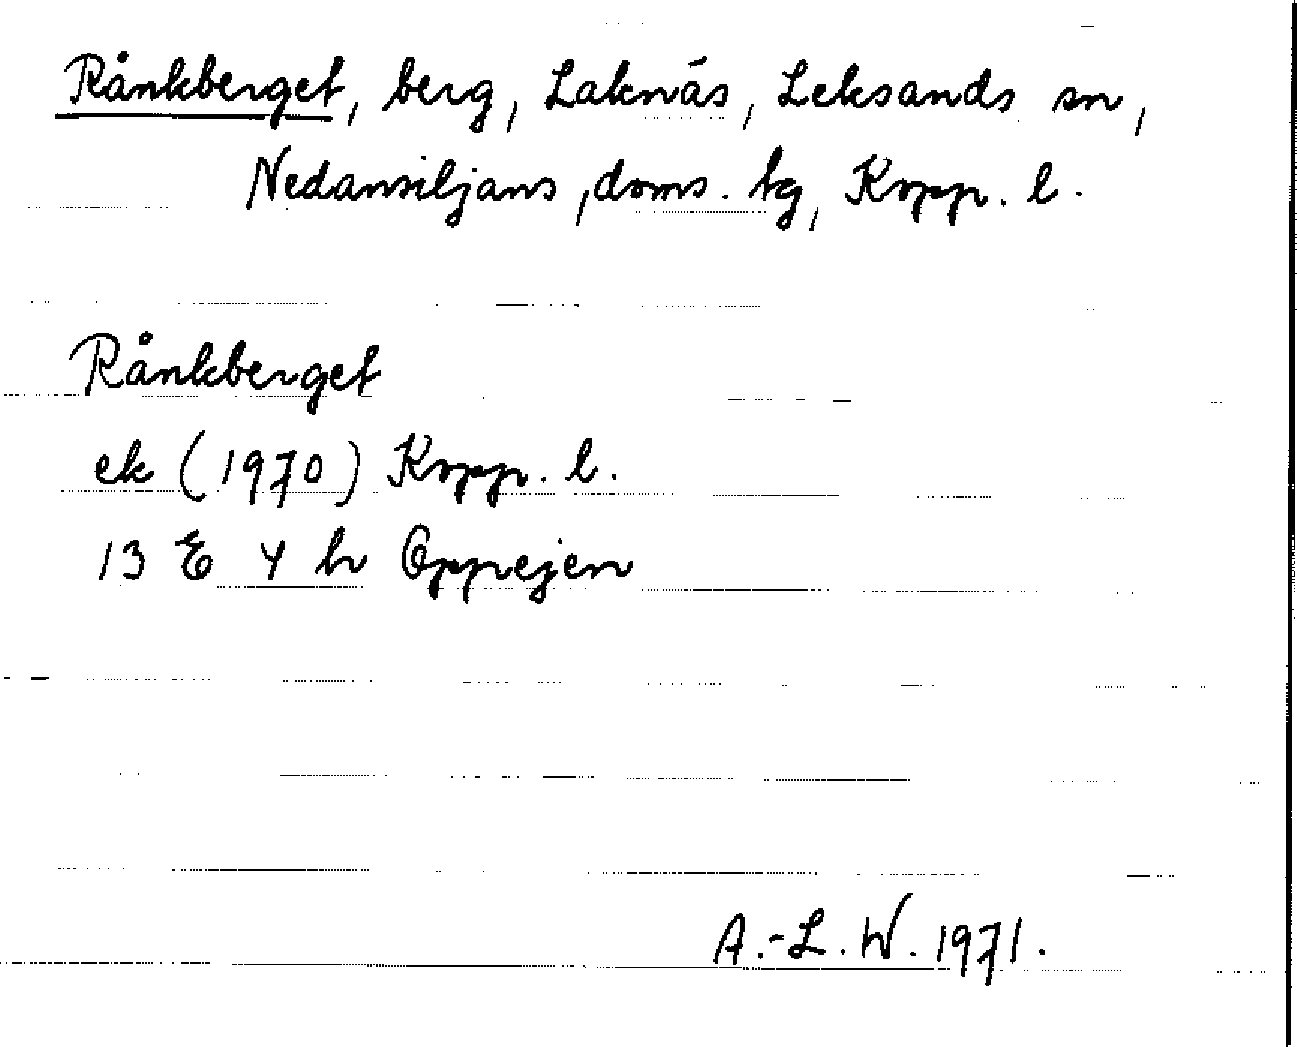 Rånkberget, berg, Laknäs, Leksands sn,
Nedansiljans, doms. tg, Kopp. l.
Rånkberget
ek (1970) Kopp. l.
13 E 4 h Oppejen
A.-L. W. 1971.